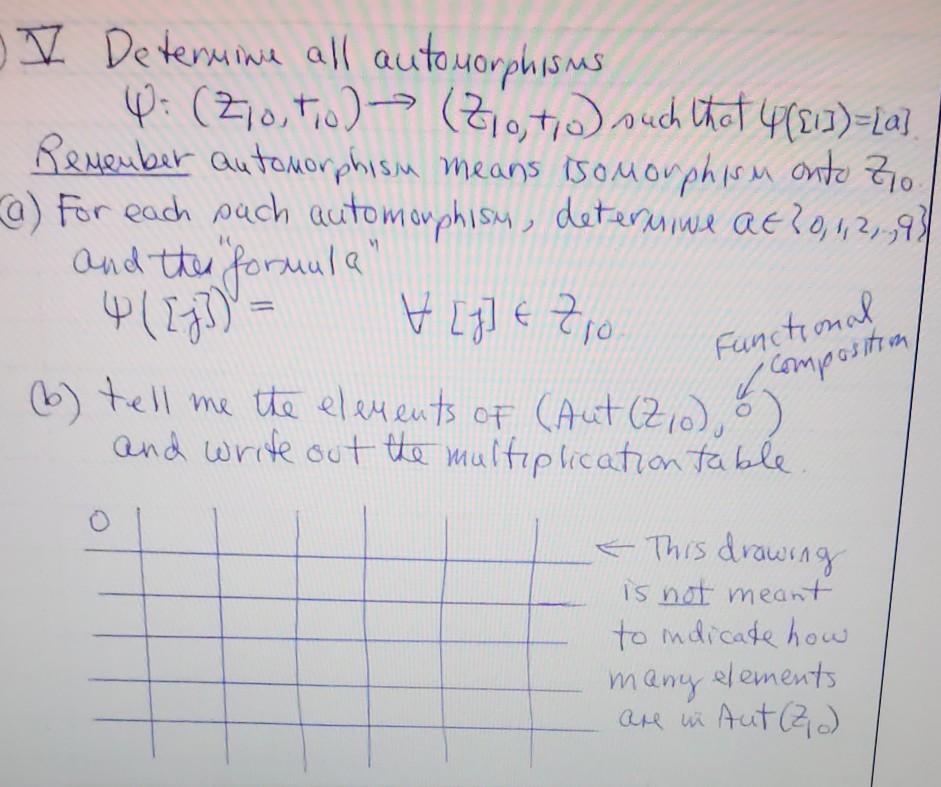 V Determine all automorphisms
Ψ: (Z₁₀, +₁₀) → (Z₁₀, +₁₀) such that Ψ([1]) = [a].
Remember automorphism means isomorphism onto Z₁₀.
(a) For each such automorphism, determine a ∈ {0,1,2,..,9}
and the "formula"
Ψ([j]) = ∀ [j] ∈ Z₁₀.
Functional
composition
(b) tell me the elements of (Aut(Z₁₀), o)
and write out the multiplication table.
o
← This drawing
is not meant
to indicate how
many elements
are in Aut(Z₁₀)